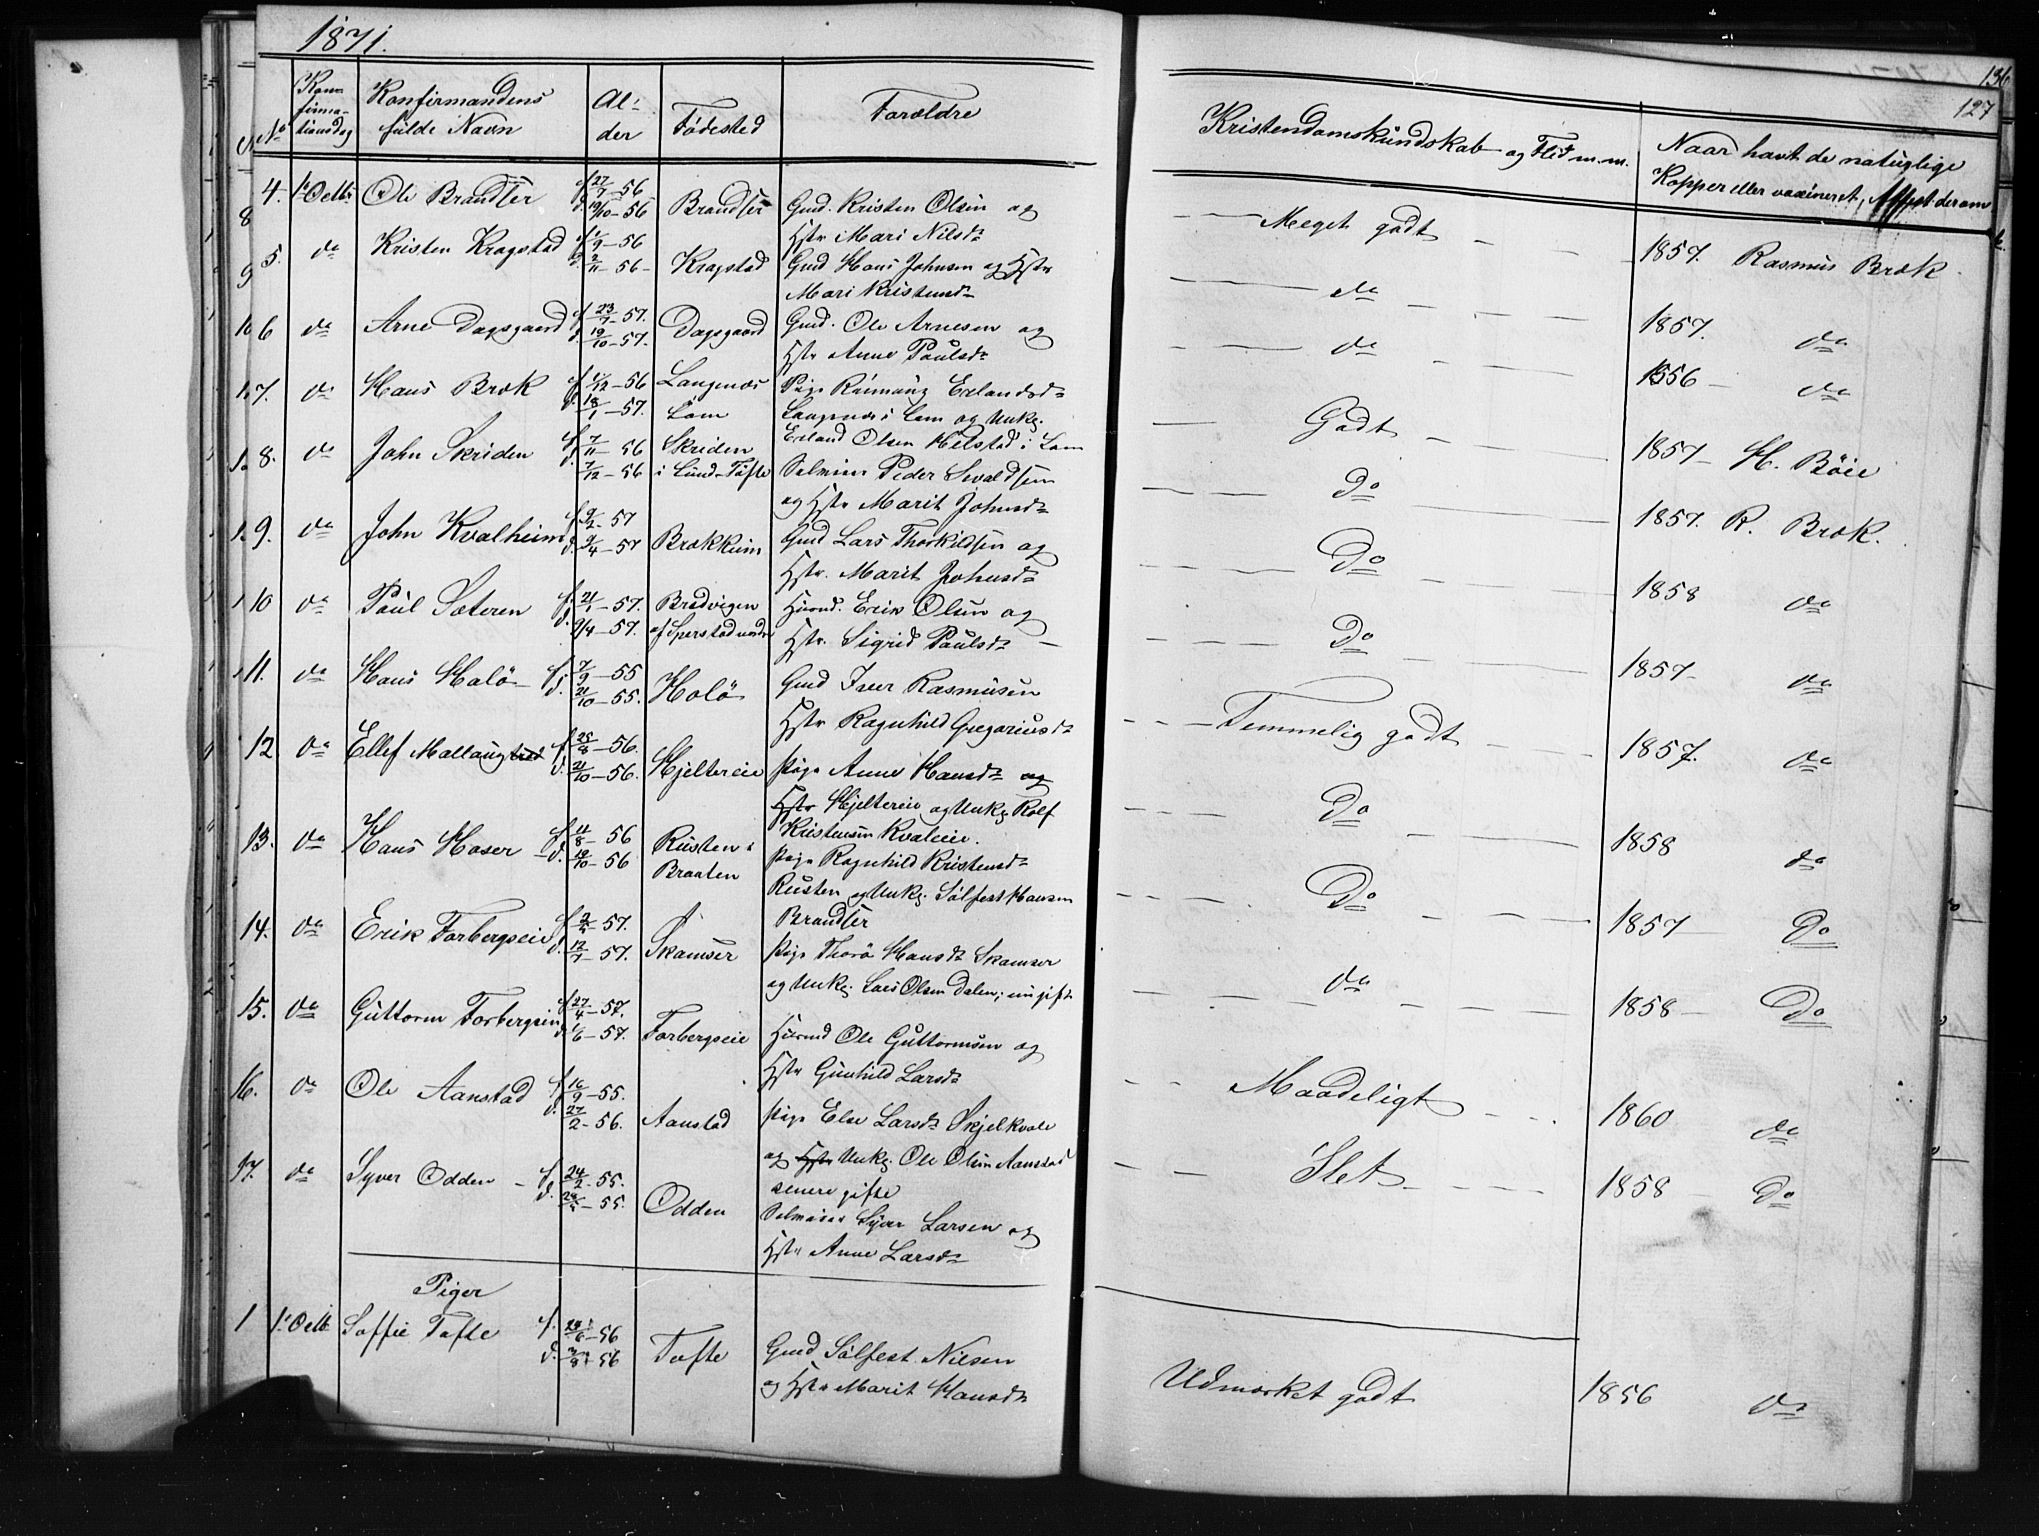 1871.
136
127
No
Kon-
firma-
tionsdag
Konfirmandens
fulde Navn
Al-
der
Fødested
Forældre
Kristendomskundskab og Flid m.m.
Naar havt de naturlige
Kopper eller vaxineret, Attest derom
4. 1ste Octbr. Ole Brandser f. 27/7-56 d. 19/10-56 Brandser Gmd. Kristen Olsen og
Hstr Mari Nilsdr
Meget godt 1857. Rasmus Bræk.
5. do Kristen Kragstad f. 1/9-56 d. 2/11-56 Kragstad Gmd Hans Johnsen og Hstr
Mari Kristensdr
do 1857. do
6 do Arne Dagsgaard f. 23/7-57. d. 19/10-57. Dagsgaard Gmd. Ole Arnesen og
Hstr Anne Paulsdr
do 1856 do
7. do Hans Bræk f. 1/12-56 d. 18/1-57. Langenæs
Lom
Pige Rønnaug Erlandsd-
Langenæs i Lom og Unkg.
Erland Olsen Hølstad i Lom
Godt 1857 H. Böie
8. do John Skriden f. 7/11-56 d. 7/12-56 Skriden
i Sund-Tofte
Selveier Peder Sivaldsen
og Hstr Marit Johnsdr
Do 1857. R. Bræk.
9. do John Kvalheim f. 9/2-57 d. 9/4-57 Brækkeim Gmd Lars Thorkildsen og
Hstr. Marit Johnsdr
Do 1858 do
10 do Paul Sæteren f. 21/1-57. d. 9/4-57. Brødvigen
af Sperstad nordre
Huusmd. Erik Olsen og
Hstr. Sigrid Paulsdr
Do 1857 do
11. do Hans Holö f. 7/9-55 d. 21/10-55. Holö Gmd Iver Rasmusen
Hstr Ragnhild Gregoriusdr
Temmelig godt 1857. do
12 do Ellef Mallaugstad f. 25/8-56. d. 21/10-56. Hjeltereie Pige Anne Hansdr og
Hstr Hjeltereie og Unkg Rolf
Kristensen Kvaleeie.
Do 1858 do
13. do Hans Moser f. 11/8-56 d. 19/10-56 Rusten i
Braaten
Pige Ragnhild Kristensdr
Rusten og Unkg. Sölfest Hansen
Brandser
Do 1857 Do
14. do Erik Forbergseie f. 2/5-57. d. 12/7-57. Skamser Pige Thorö Hansdr Skamser
og Unkg. Lars Olsen Dalen; ungift
do 1858 Do
15. do Guttorm Forbergseie f. 27/4-57. d. 1/6-57. Forbergseie Huusmd Ole Guttormsen og
Hstr Gunhild Larsdr
Maadeligt 1860 do
16. do Ole Aanstad f. 16/9-55. d. 27/2-56. Aanstad Pige Else Larsdr Skjelkvale
og Hstr Unkg. Ole Olsen Aanstad
senere gifte
Slet 1858 Do
17. do Syver Odden f. 24/2-55. d. 28/5-55. Odden Selveier Syver Larsen og
Hstr Anne Larsdr
Piger
1 1ste Octb Soffie Tofte f. 29/6-56 d. 3/8-56 Tofte Gmd Sölfest Nilsen
og Hstr Marit Hansdr
Udmærket godt 1856 do